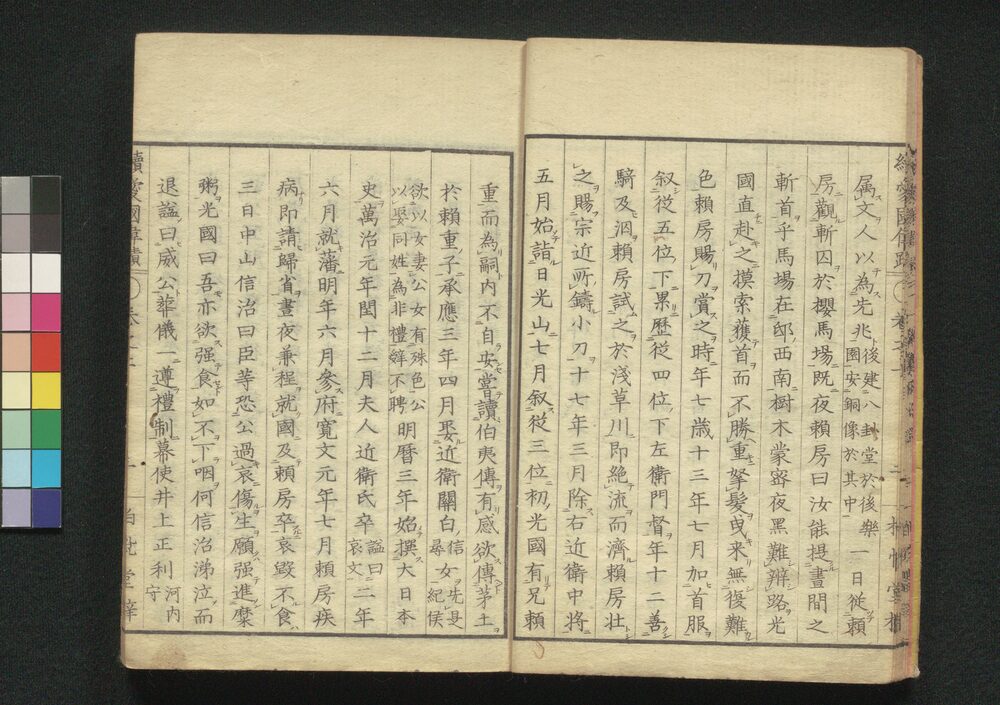 属文人以為先兆後建八卦堂於後樂園安銅像於其中一日從頼
房觀斬囚於櫻馬場既夜頼房曰汝能提晝間之
斬首乎馬場在邸西南樹木蒙密夜黑難辨路光
國直赴之摸索獲首而不勝重拏髮曳来無復難
色頼房賜刀賞之時年七歲十三年七月加首服
叙從五位下累歷從四位下左衛門督年十二善
騎及泅頼房試之於淺草川即絶流而濟頼房壮
之賜宗近所鑄小刀十七年三月除右近衛中將
五月始詣日光山七月叙從三位初光國有兄頼
重而為嗣内不自安嘗讀伯夷傳有感欲傳茅土
於頼重子承應三年四月娶近衛關白信尋女先是紀侯
欲以女妻公女有殊色公以娶同姓為非禮辭不聘明曆三年始撰大日本
史萬治元年閏十二月夫人近衛氏卒謚曰哀文二年
六月就藩明年六月參府寬文元年七月頼房疾
病即請歸省晝夜兼程就國及頼房卒哀毀不食
三日中山信治曰臣等恐公過哀傷生願强進糜
粥光國曰吾亦欲强食如不下咽何信治涕泣而
退謚曰威公葬儀一遵禮制幕使井上正利河内守
續愛國偉蹟